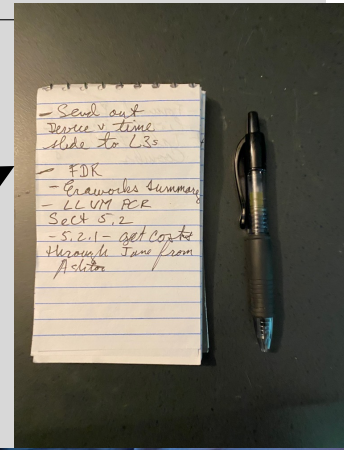 - Send out
Device v time
slide to L3s
- FDR
- Eraworks Summary
- LLVM PCR
Sect 5.2
- 5.2.1 - get costs
through June from